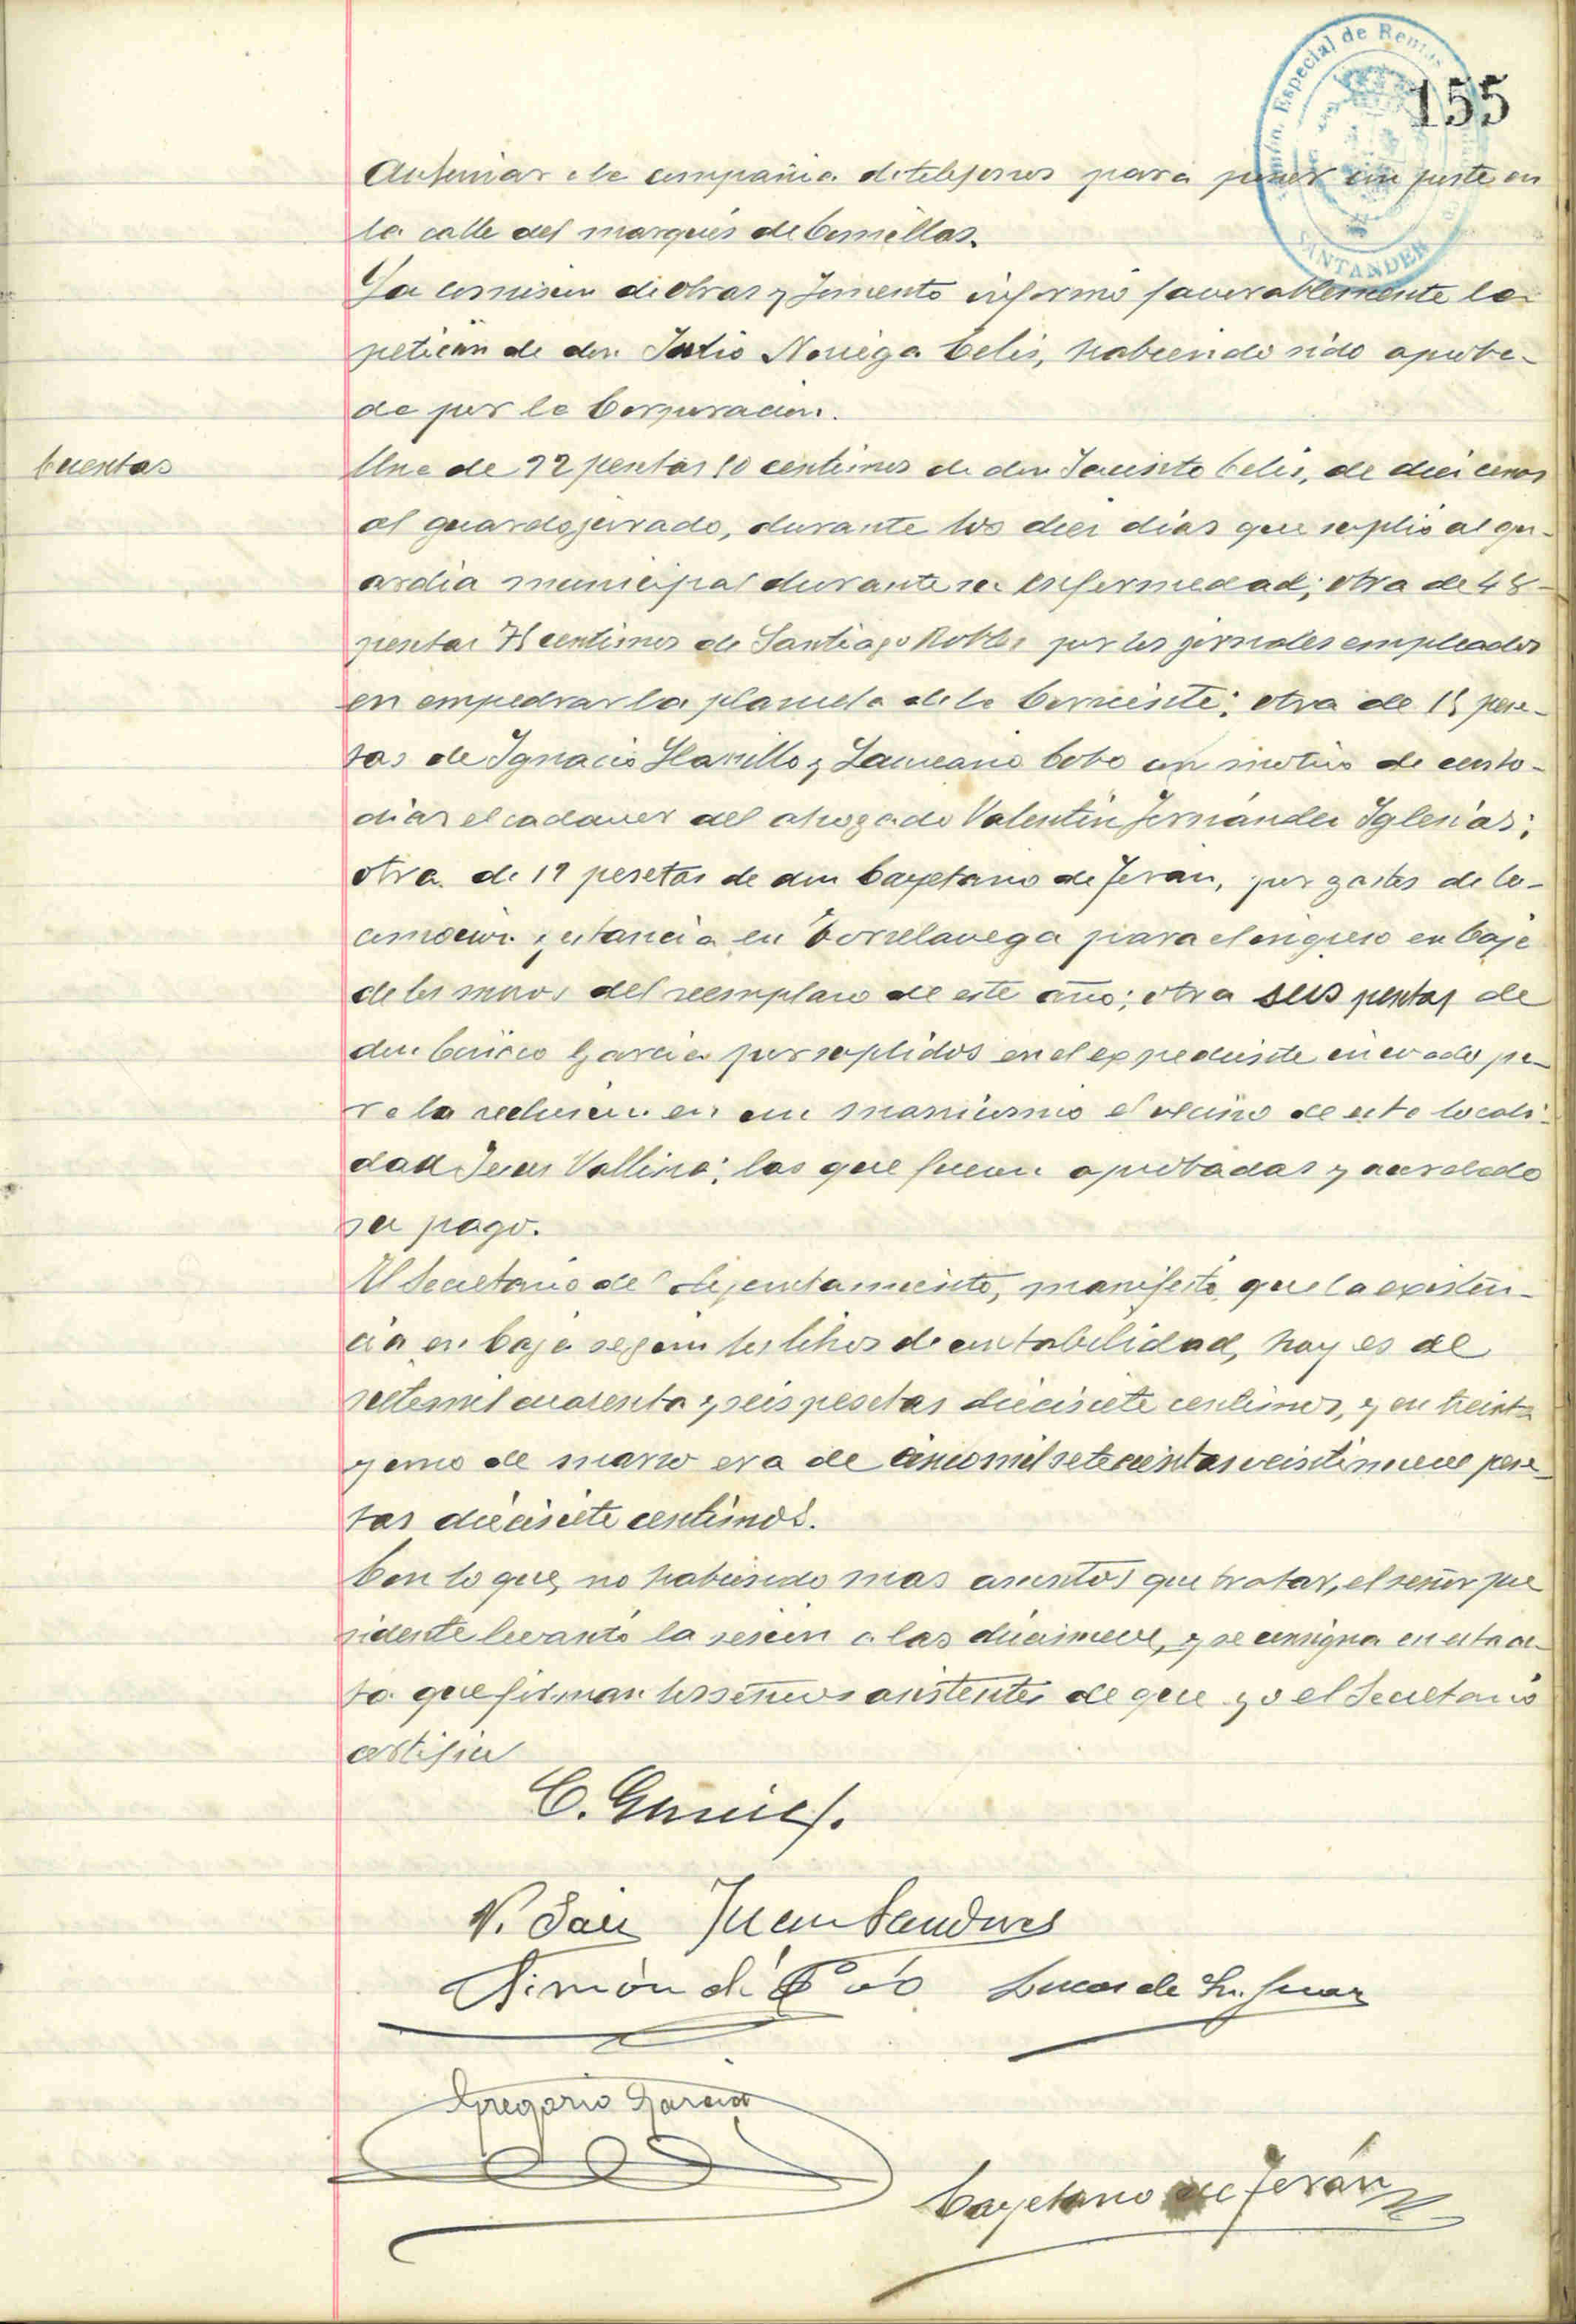 Especial de Rentas
155
SANTANDER
Autorizar a la compañia de telefonos para poner un poste en
la calle del marqués de Comillas.
La comision de obras y fomento informó favorablemente la
petición de don Julio Noriega Celis, habiendo sido aproba-
da por la Corporacion.
Cuentas
Una de 22 pesetas 50 centimos de don Jacinto Celis, de dici cenas
al guarda jurado, durante los diez dias que suplió al gu-
ardia municipal durante su enfermedad; otra de 48
pesetas 75 centimos de Santiago Robles por los jornales empleados
en empedrar la plazuela de la Corriente; otra de 15 pese-
tas de Ignacio y Laureano Cobo con motivo de custo-
diar el cadaver del ahogado Valentin Fernández Iglesias;
otra de 19 pesetas de don Cayetano de Terán, por gastos de lo-
comocion y estancia en Torrelavega para el ingreso en Caja
de los mozos del reemplazo de este año; otra seis pesetas de
don Ciriaco Garcia por suplidos en el expediente incoado pa-
ra la reclusion en un manicomio el vecino de esta locali-
dad Jesus Vallina; las que fueron aprobadas y acordado
su pago.
El Secretario del Ayuntamiento, manifestó que la existen-
cia en Caja segun los libros de contabilidad, hoy es de
sietemil cuarenta y seis pesetas diecisiete centimos, y en treinta
y uno de marzo era de cincomil setecientas veintinueve pese-
tas diecisiete centimos.
Con lo que, no habiendo mas asuntos que tratar, el señor pre
sidente levantó la sesion a las diecinueve, y se consigna en esta ac-
ta que firman los señores asistentes de que yo el Secretario
certifico
N. Saiz Juan Sandoves
Simón de Cobo Lucas de Sn. Juan
Gregorio Garcia
Cayetano de Terán